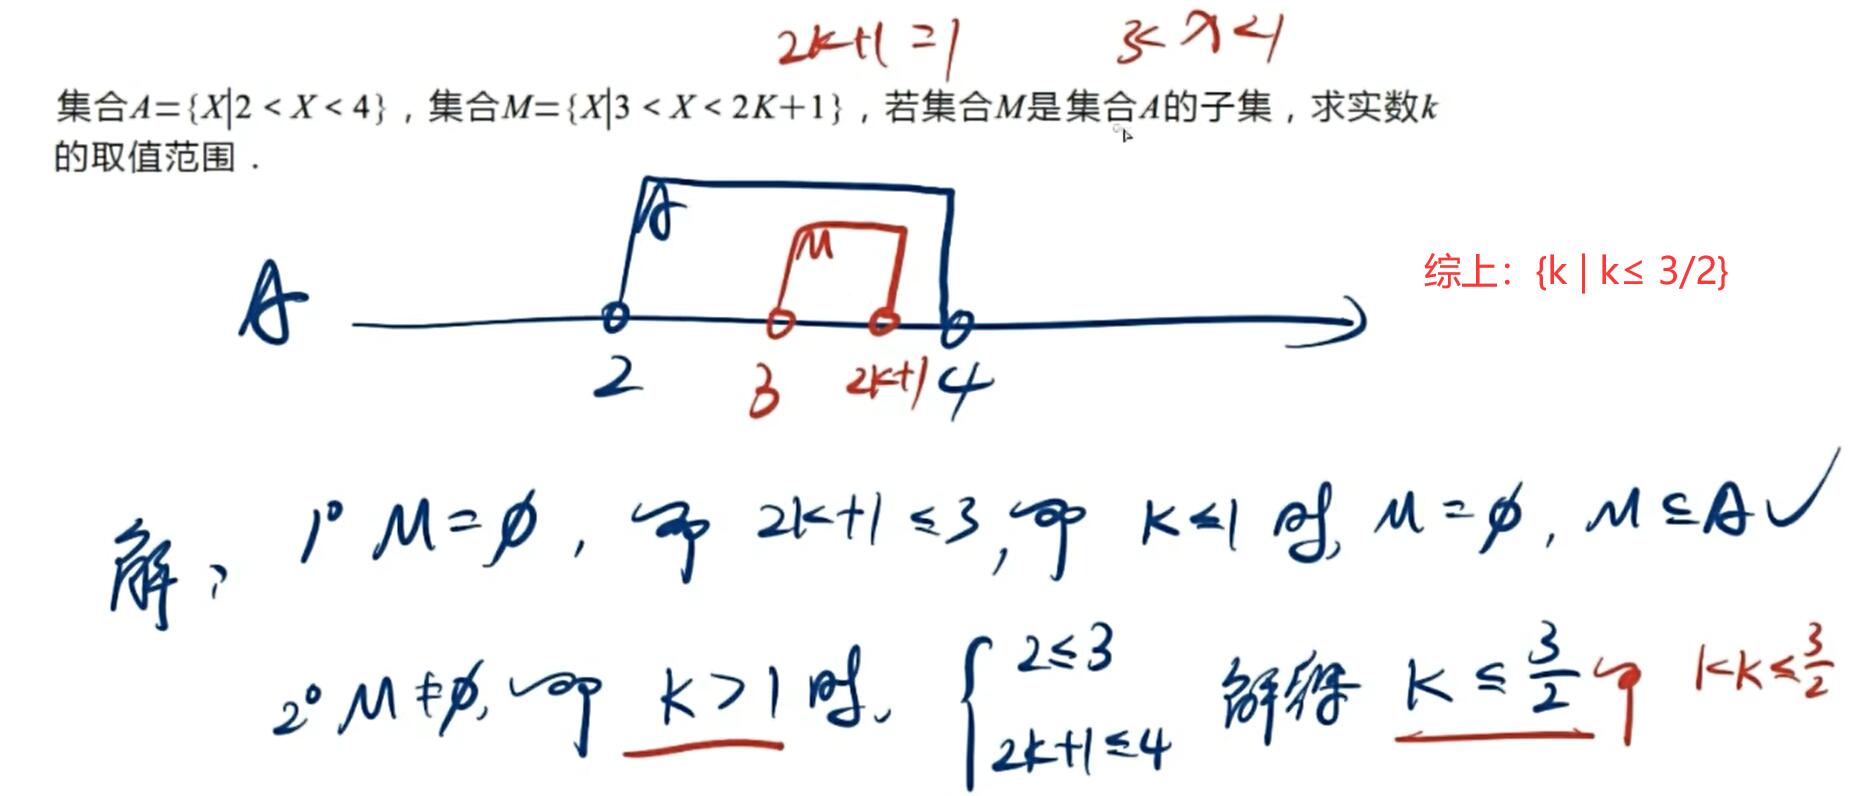 2k+1=1 3<x<1
集合A={X|2<X<4}，集合M={X|3<X<2K+1}，若集合M是集合A的子集，求实数k
的取值范围．
A
M
A
综上：{k | k≤ 3/2}
2 3 2k+1 4
解： 1° M=∅，即 2k+1≤3，即 k≤1 时，M=∅，M⊆A✓
2° M≠∅，即 k>1 时， { 2≤3 解得 k≤3/2 即 1<k≤3/2
2k+1≤4